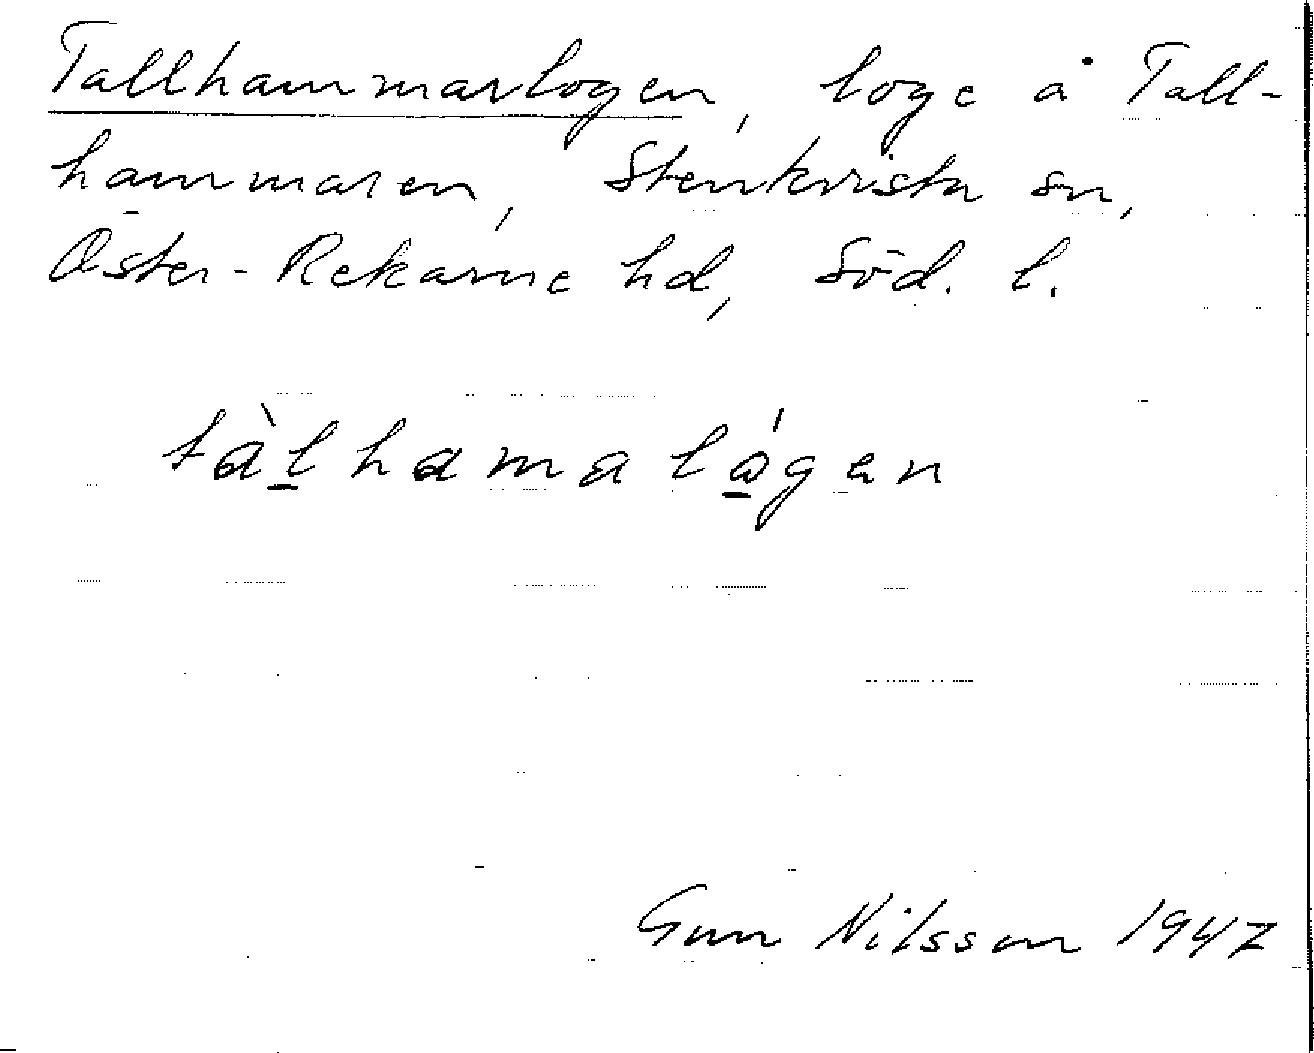 Tallhammarlogen, loge å Tall-
hammaren, Stenkvista sn,
Öster-Rekarne hd, Söd. l.
tàl̠hamaló̠gen
Gun Nilsson 1947